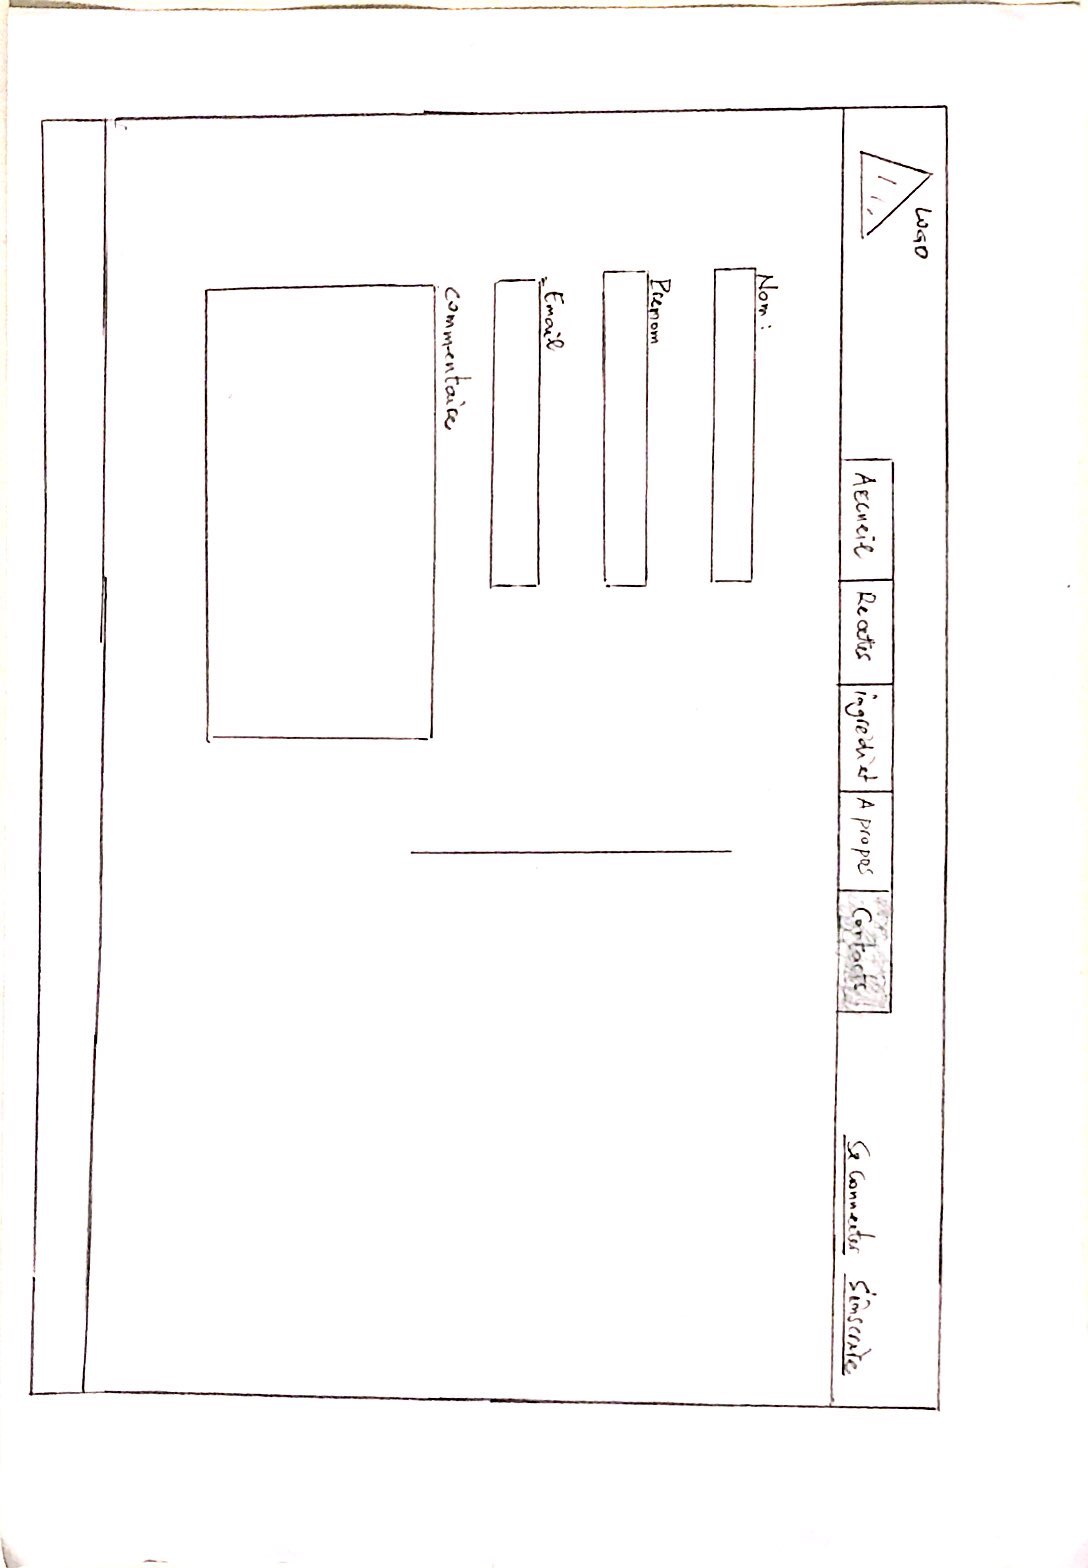 LOGO
Accueil Recettes ingrédiet A propos Contacts Se connecter S'inscrire
Nom :
Prenom
Email
Commentaire